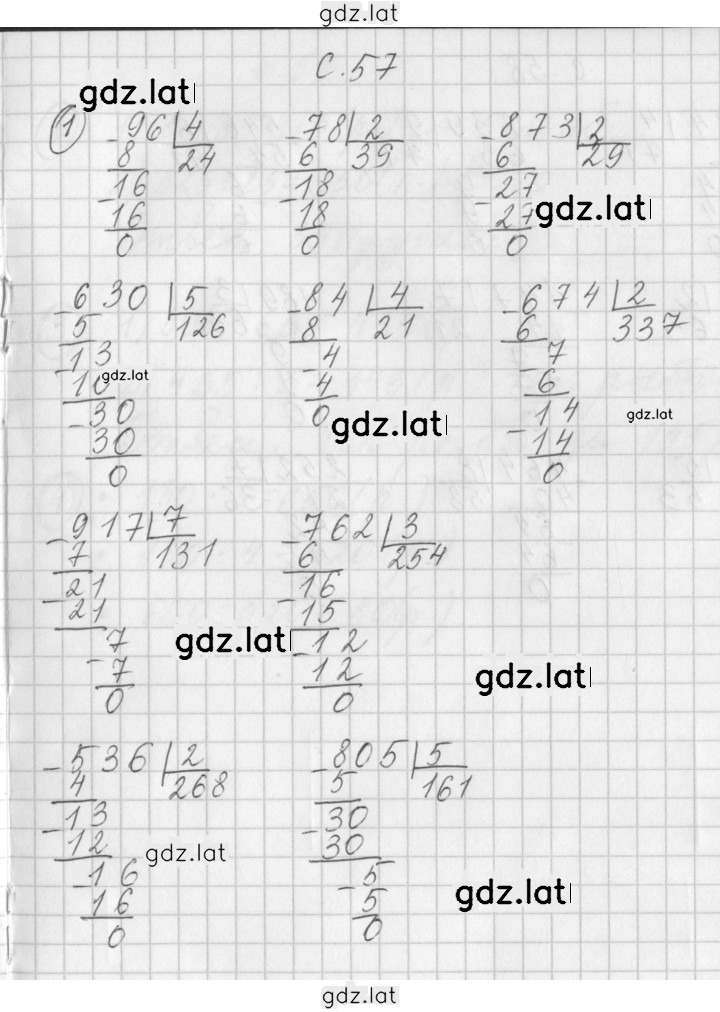 gdz.lat
с.57
gdz.lat
1
-96 4 -78 2 -873 2
8 24 6 39 6 29
-16 -18 -27
16 18 27 gdz.lat
0 0 0
-630 5 -84 4 -674 2
5 126 8 21 6 337
-13 -4 -7
10 gdz.lat 4 6
-30 0 gdz.lat -14 gdz.lat
30 14
0 0
-917 7 -762 3
7 131 6 254
-21 -16
21 15
-7 gdz.lat -12
7 12 gdz.lat
0 0
-536 2 -805 5
4 268 5 161
-13 -30
12 gdz.lat 30
-16 -5
16 5 gdz.lat
0 0
gdz.lat